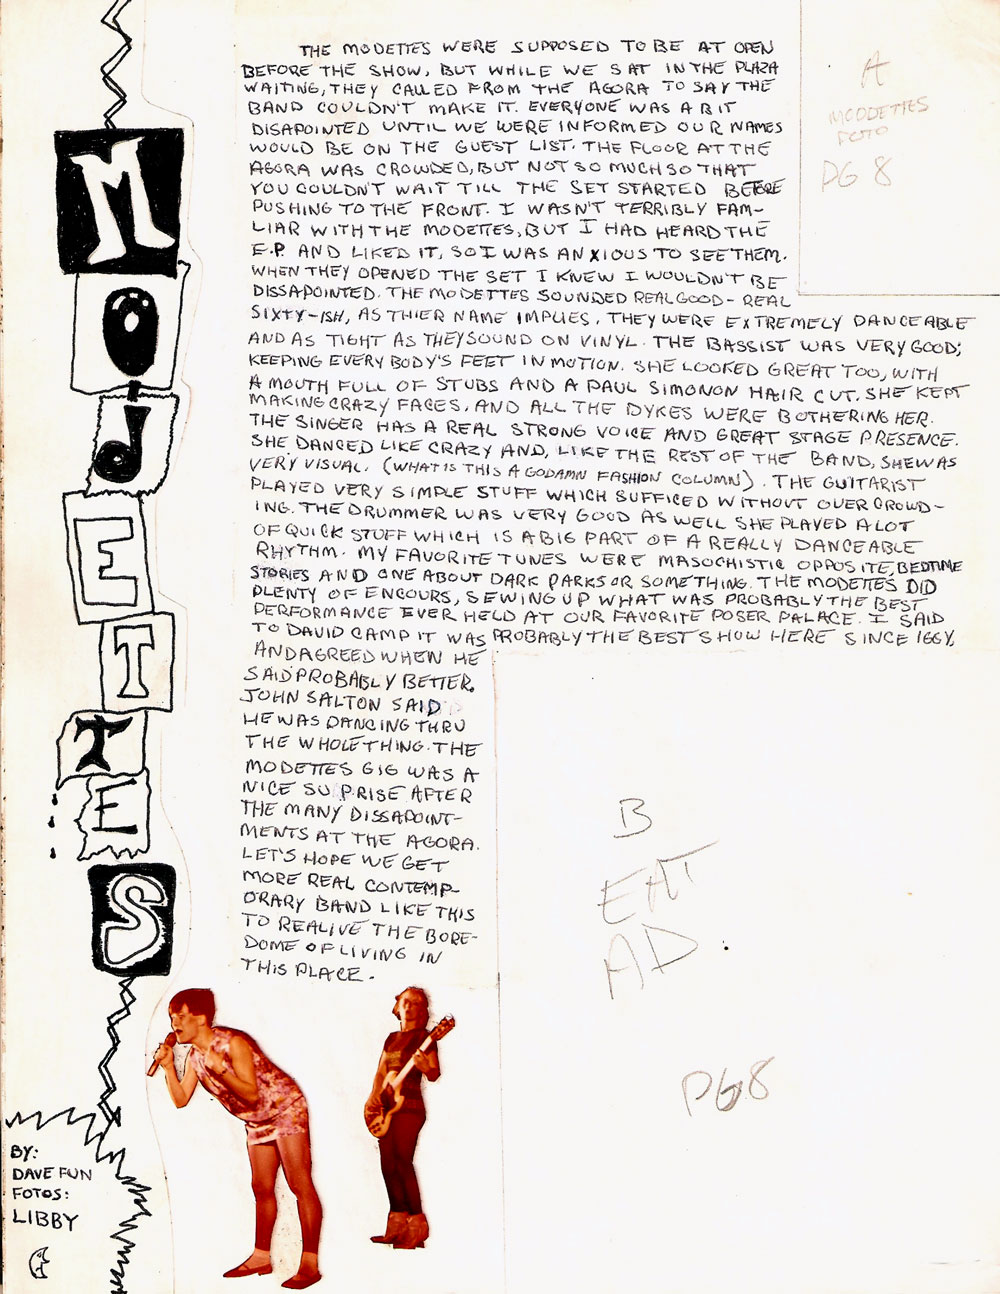 MODETTES
THE MODETTES WERE SUPPOSED TO BE AT OPEN
BEFORE THE SHOW, BUT WHILE WE SAT IN THE PLAZA
WAITING, THEY CALLED FROM THE AGORA TO SAY THE
BAND COULDN'T MAKE IT. EVERYONE WAS A BIT
DISAPOINTED UNTIL WE WERE INFORMED OUR NAMES
WOULD BE ON THE GUEST LIST. THE FLOOR AT THE
AGORA WAS CROWDED, BUT NOT SO MUCH SO THAT
YOU COULDN'T WAIT TILL THE SET STARTED BEFORE
PUSHING TO THE FRONT. I WASN'T TERRIBLY FAM-
LIAR WITH THE MODETTES, BUT I HAD HEARD THE
E.P. AND LIKED IT, SO I WAS ANXIOUS TO SEE THEM.
WHEN THEY OPENED THE SET I KNEW I WOULDN'T BE
DISSAPOINTED. THE MODETTES SOUNDED REAL GOOD - REAL
SIXTY-ISH, AS THIER NAME IMPLIES. THEY WERE EXTREMELY DANCEABLE
AND AS TIGHT AS THEY SOUND ON VINYL. THE BASSIST WAS VERY GOOD;
KEEPING EVERY BODY'S FEET IN MOTION. SHE LOOKED GREAT TOO, WITH
A MOUTH FULL OF STUBS AND A PAUL SIMONON HAIR CUT. SHE KEPT
MAKING CRAZY FACES, AND ALL THE DYKES WERE BOTHERING HER.
THE SINGER HAS A REAL STRONG VOICE AND GREAT STAGE PRESENCE.
SHE DANCED LIKE CRAZY AND, LIKE THE REST OF THE BAND, SHE WAS
VERY VISUAL. (WHAT IS THIS A GODAMN FASHION COLUMN). THE GUITARIST
PLAYED VERY SIMPLE STUFF WHICH SUFFICED WITHOUT OVER CROWD-
ING. THE DRUMMER WAS VERY GOOD AS WELL SHE PLAYED A LOT
OF QUICK STUFF WHICH IS A BIG PART OF A REALLY DANCEABLE
RHYTHM. MY FAVORITE TUNES WERE MASOCHISTIC OPPOSITE, BEDTIME
STORIES AND ONE ABOUT DARK PARKS OR SOMETHING. THE MODETTES DID
PLENTY OF ENCOURS, SEWING UP WHAT WAS PROBABLY THE BEST
PERFORMANCE EVER HELD AT OUR FAVORITE POSER PALACE. I SAID
TO DAVID CAMP IT WAS PROBABLY THE BEST SHOW HERE SINCE IGGY,
AND AGREED WHEN HE
SAID PROBABLY BETTER.
JOHN SALTON SAID
HE WAS DANCING THRU
THE WHOLE THING. THE
MODETTES GIG WAS A
NICE SUPRISE AFTER
THE MANY DISSAPOINT-
MENTS AT THE AGORA.
LET'S HOPE WE GET
MORE REAL CONTEMP-
ORARY BAND LIKE THIS
TO REALIVE THE BORE-
DOME OF LIVING IN
THIS PLACE.
A
MODETTES
FOTO
PG 8
B
EAT
AD.
PG 8
BY:
DAVE FUN
FOTOS:
LIBBY